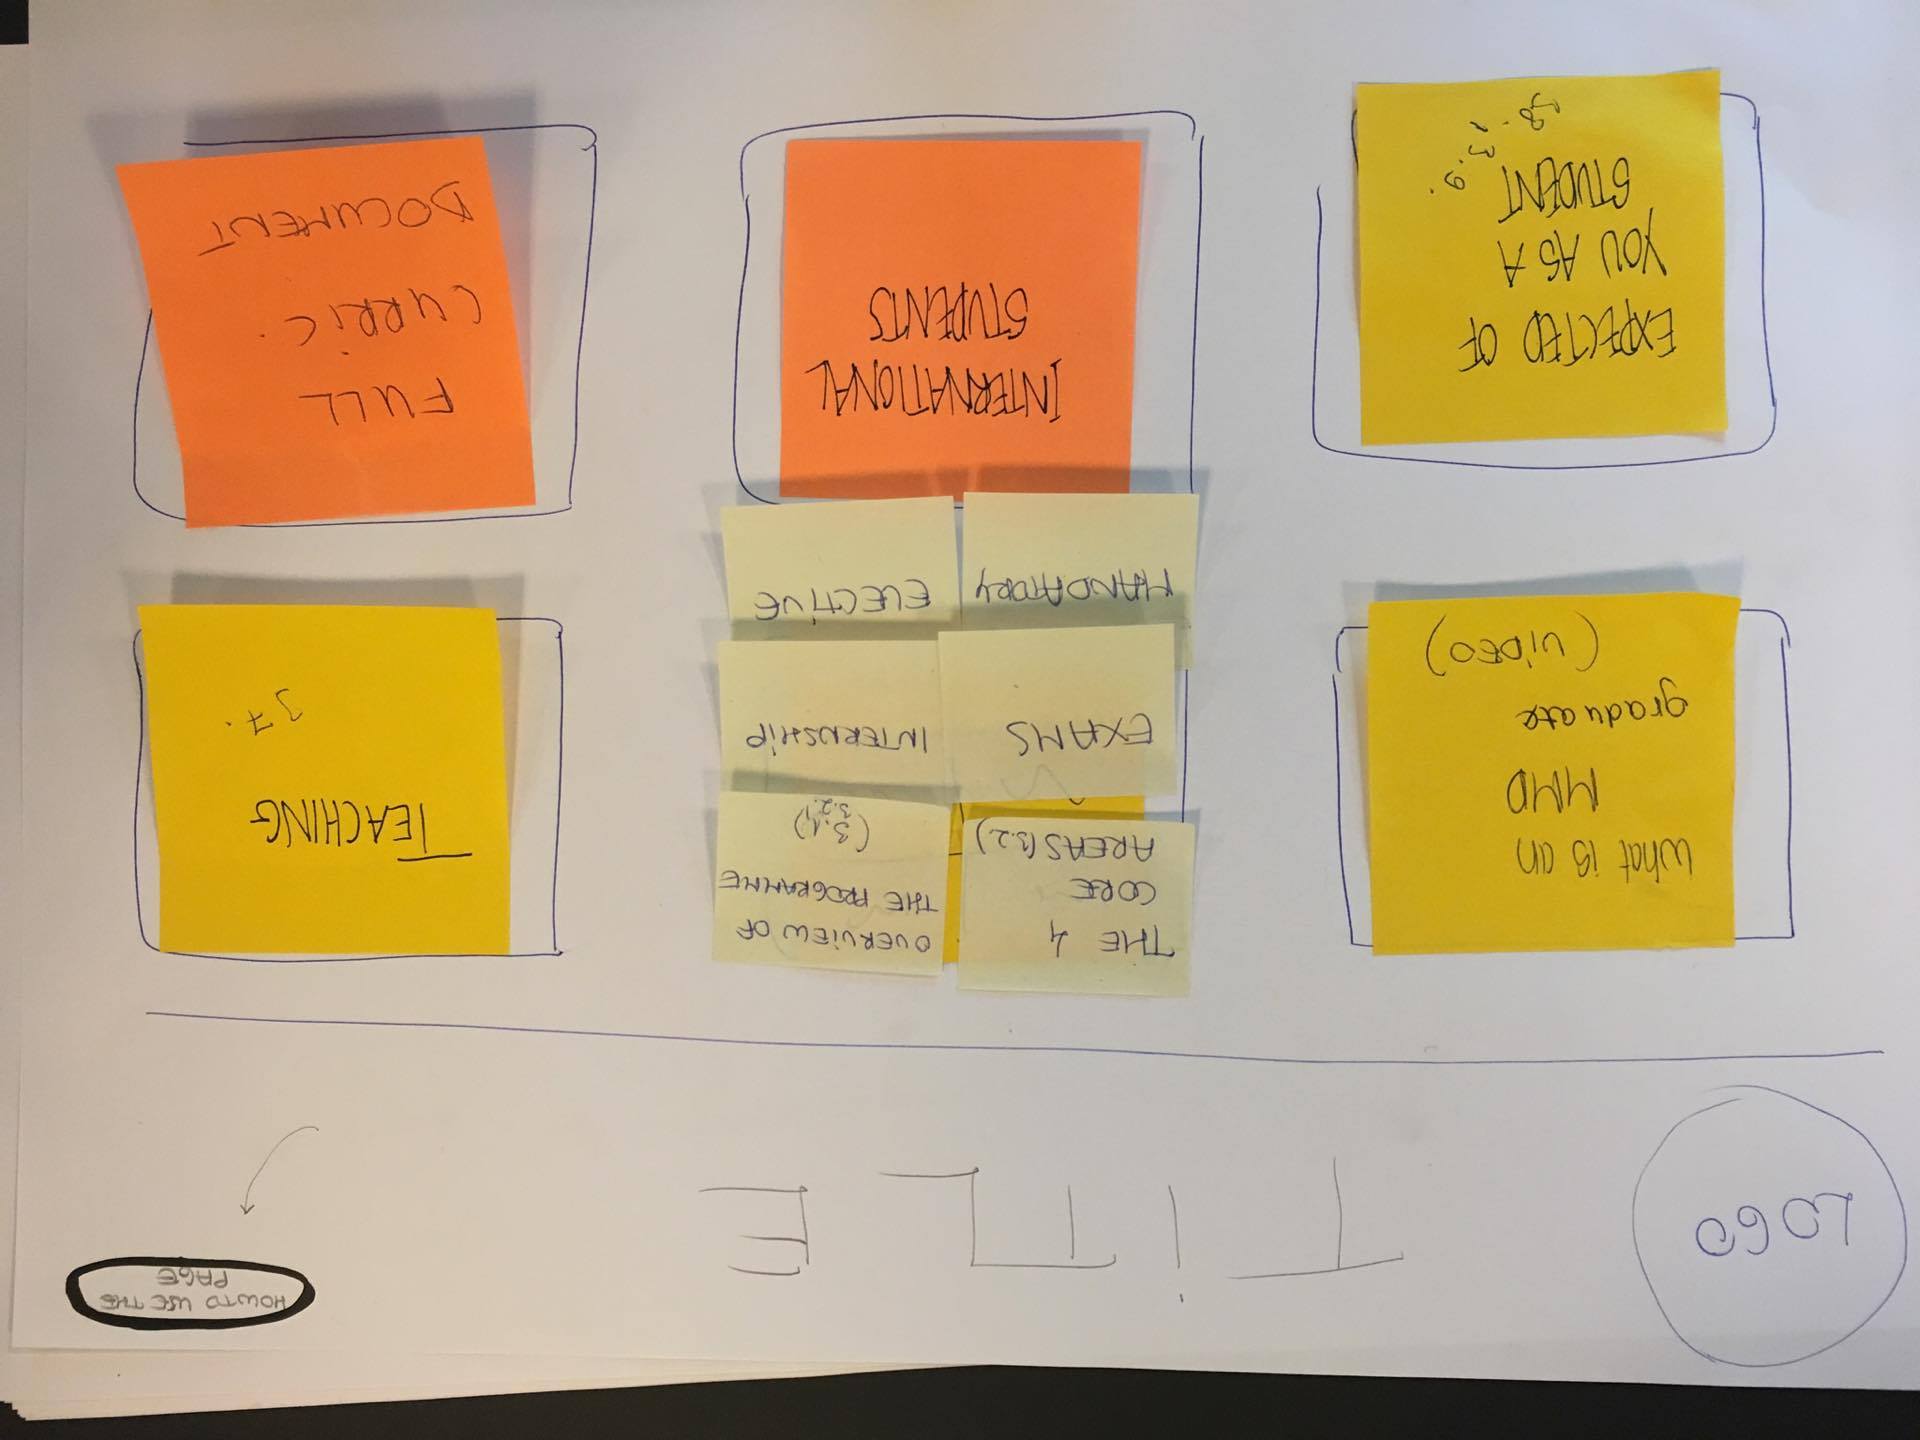 LOGO
TiTLE
HOW TO USE THE
PAGE
What is an
MMD
graduate
(ViDEO)
THE 4
CORE
AREAS (3.2)
OVERViEW OF
THE PROGRAMME
(3.1)
3.2.
EXAMS
INTERNSHiP
MANDATORY
ELECTiVE
TEACHING
37.
EXPECTED OF
YOU AS A
STUDENT
INTERNATIONAL
STUDENTS
FULL
CURRiC.
DOCUMENT